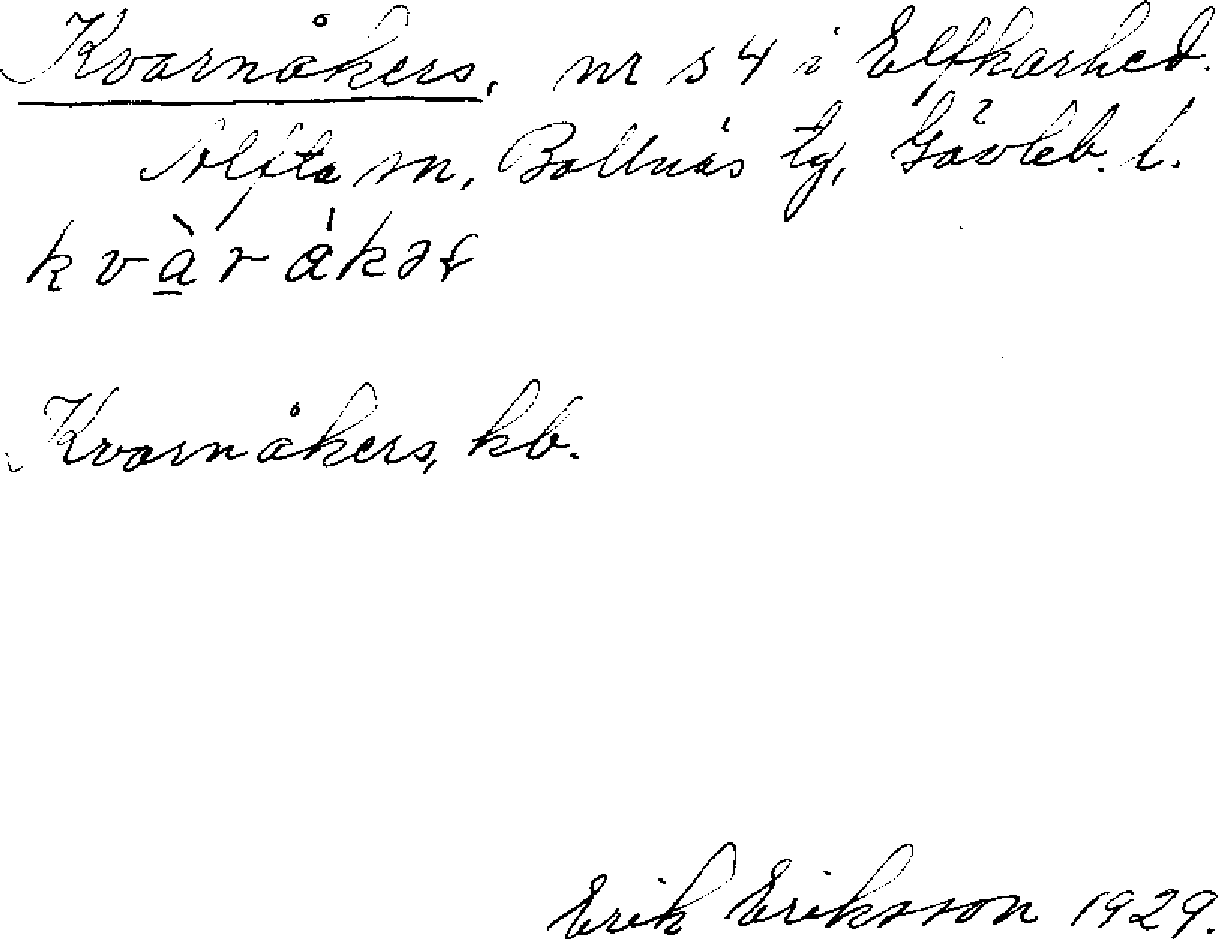 Kvarnåkers, nr s 4 i Elfkarhed.
Alfta sn, Bollnäs tg, Gävleb. l.
kvàråkəʂ
Kvarnåkers, kb.
Erik Eriksson 1929.